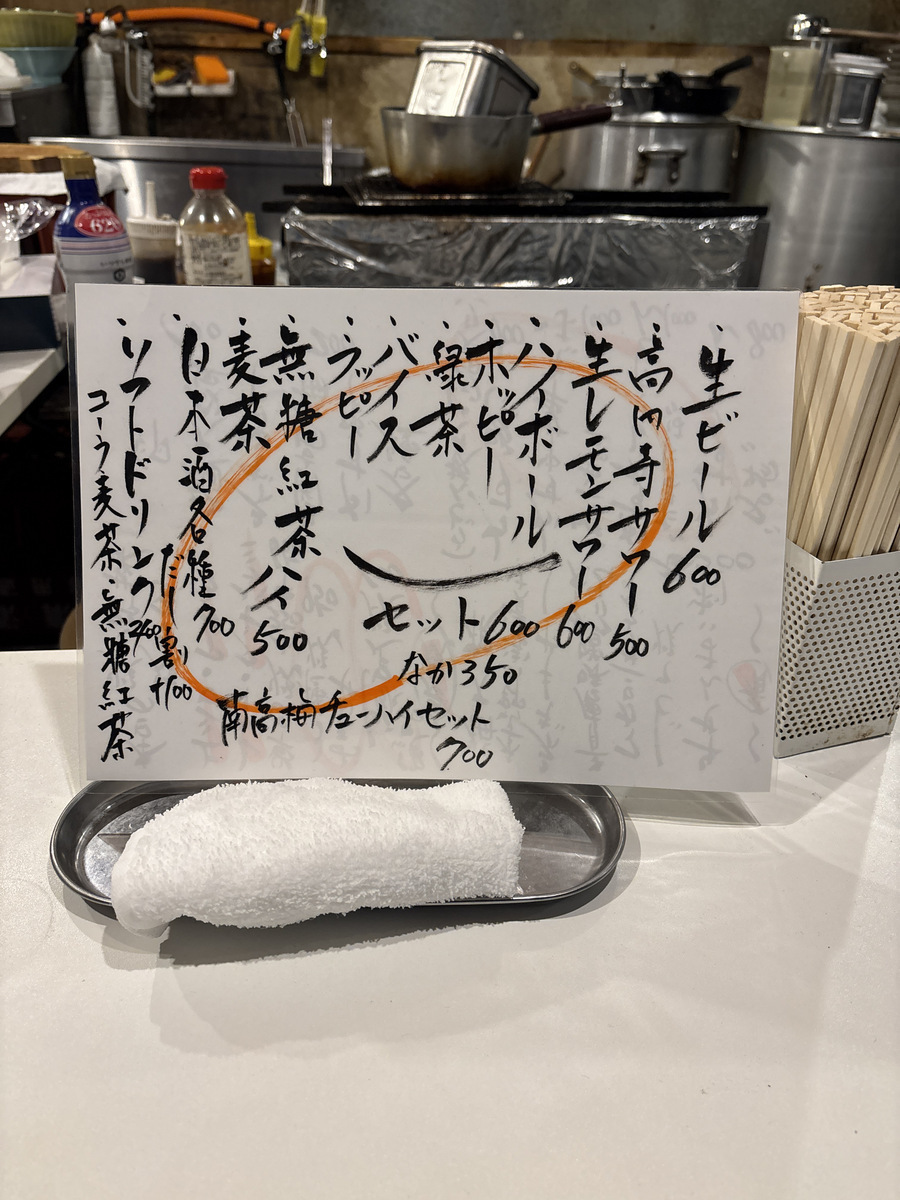 ・生ビール600
・高円寺サワー500
・生レモンサワー600
・ハイボール
・ホッピー
・緑茶
・バイス
・ラッピー
セット600
なか350
南高梅チューハイセット
700
・無糖紅茶ハイ
・麦茶
500
・日本酒各種700
だし割り
+100
・ソフトドリンク200
コーラ・麦茶・無糖紅茶
620